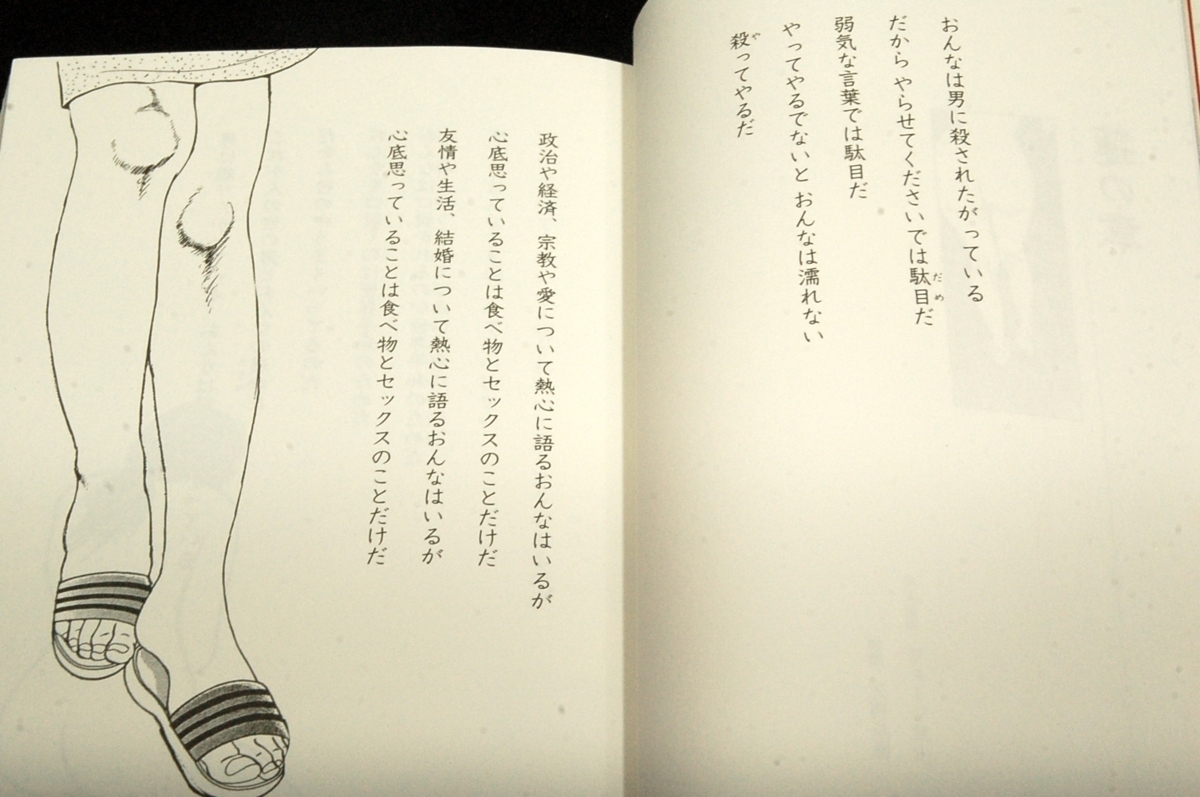 おんなは男に殺されたがっている
だから やらせてくださいでは駄目だ
だめ
弱気な言葉では駄目だ
やってやるでないと おんなは濡れない
殺ってやるだ
や
政治や経済、宗教や愛について熱心に語るおんなはいるが
心底思っていることは食べ物とセックスのことだけだ
友情や生活、結婚について熱心に語るおんなはいるが
心底思っていることは食べ物とセックスのことだけだ